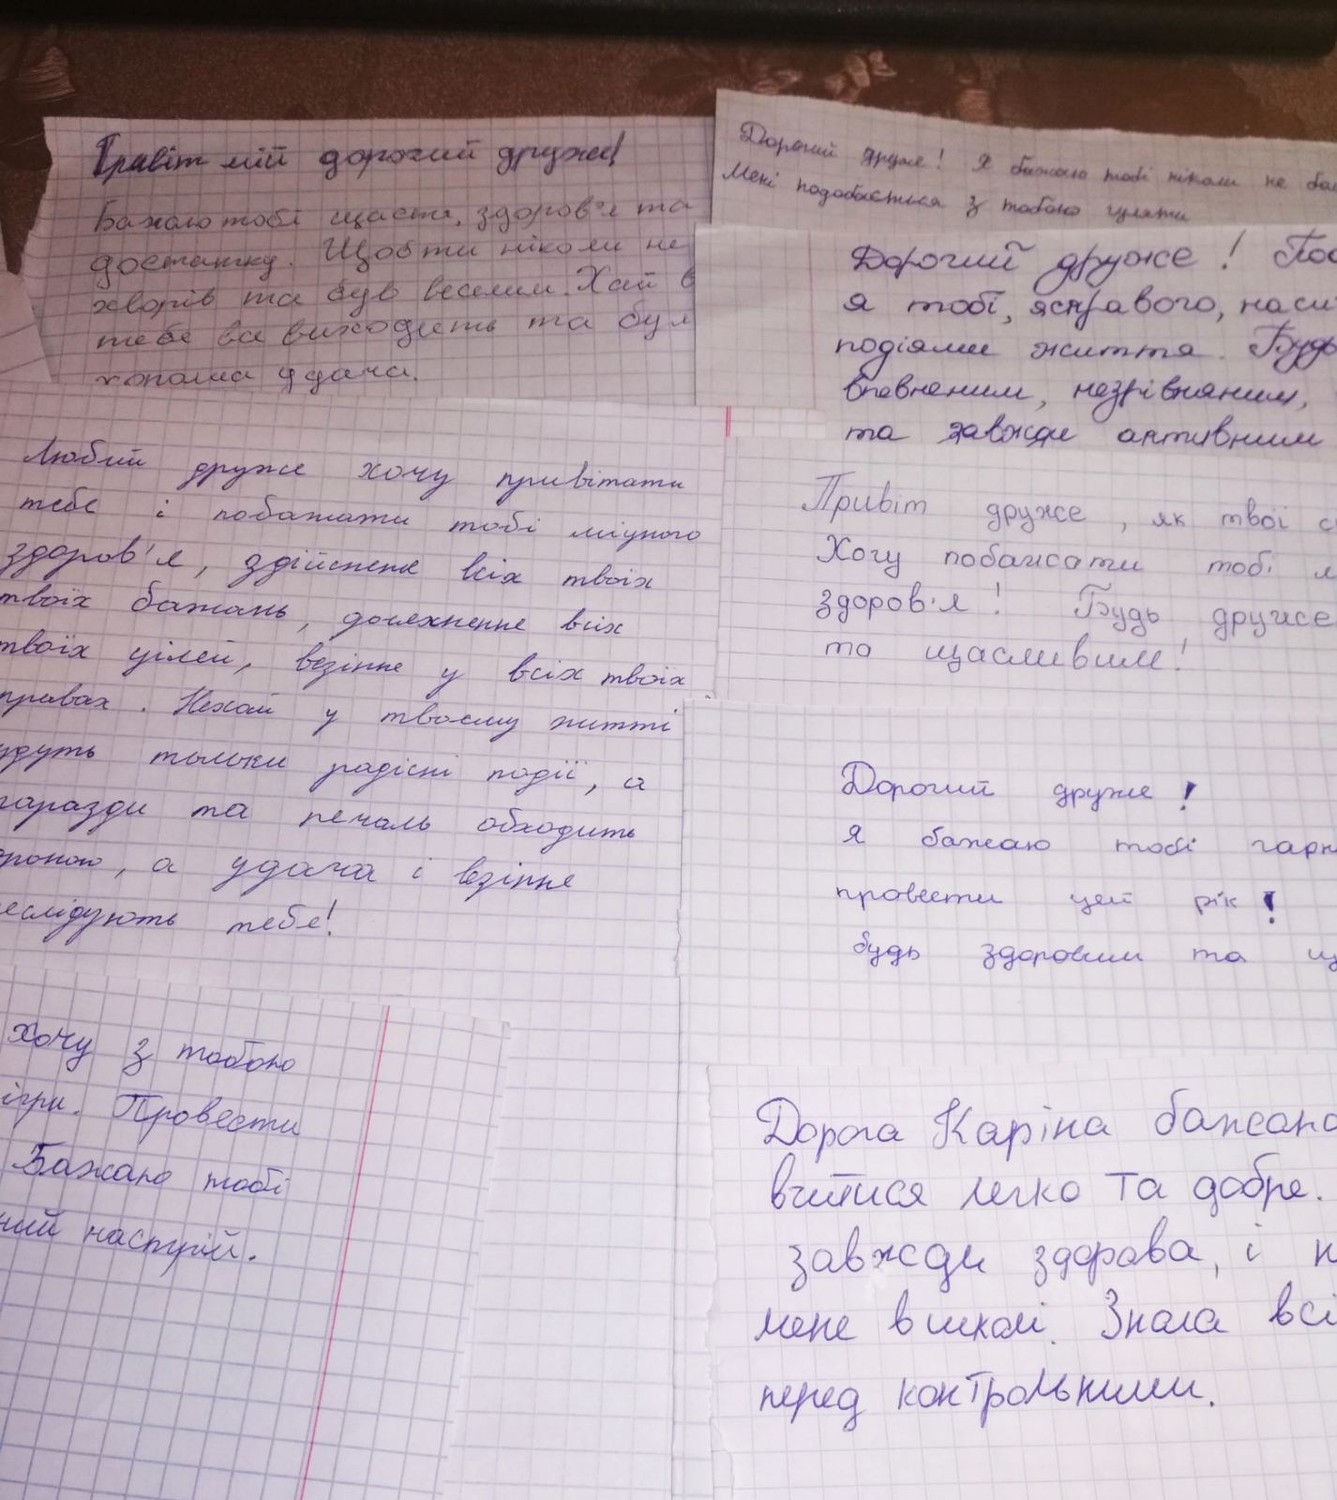 Привіт мій дорогий друже!
Бажаю тобі щастя, здоров'я та
достатку. Щоб ти ніколи не
хворів та був веселим. Хай в
тебе все виходить та бул
хороша удача.
Дорогий друже! Я бажаю тобі ніколи не бол
Мені подобається з тобою гуляти
Дорогий друже! Поб
я тобі, яскравого, наси
подіями життя. Будь
впевненим, незрівняним,
та завжди активним
Любий друже хочу привітати
тебе і побажати тобі міцного
здоров'я, здійснення всіх твоїх
твоїх бажань, досягнення всіх
твоїх цілей, везіння у всіх твоїх
правах. Нехай у твоєму житті
удуть тільки радісні події, а
гаразди та печаль обходить
роною, а удача і везіння
еслідують тебе!
Привіт друже, як твої с
Хочу побажати тобі м
здоров'я! Будь друже
та щасливим!
Дорогий друже!
Я бажаю тобі гарн
провести цей рік!
будь здоровим та щ
Хочу з тобою
ігри. Провести
Бажаю тобі
ний настрій.
Дорога Каріна бажаю
вчитися легко та добре.
завжди здорова, і н
мене в школі. Знала всі
перед контрольними.